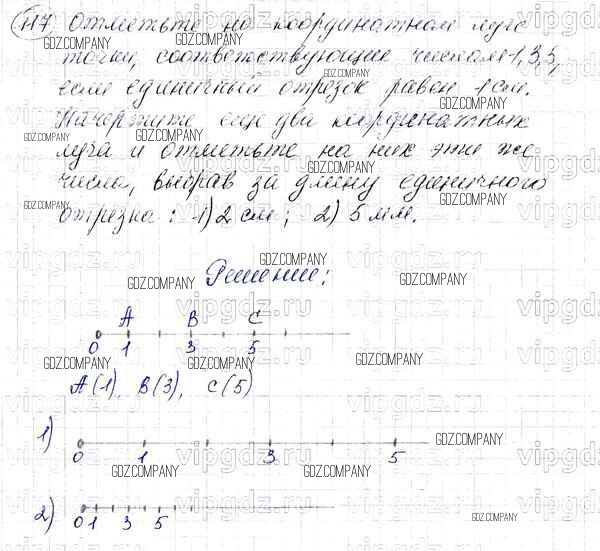 117 Отметьте на координатном луче
точки, соответствующие числам 1, 3, 5,
если единичный отрезок равен 1 см.
Начертите ещё два координатных
луча и отметьте на них эти же
числа, выбрав за длину единичного
отрезка: 1) 2 см; 2) 5 мм.
Решение:
A B C
0 1 3 5
A(1), B(3), C(5)
1)
0 1 3 5
2)
0 1 3 5
GDZ.COMPANY
vipgdz.ru